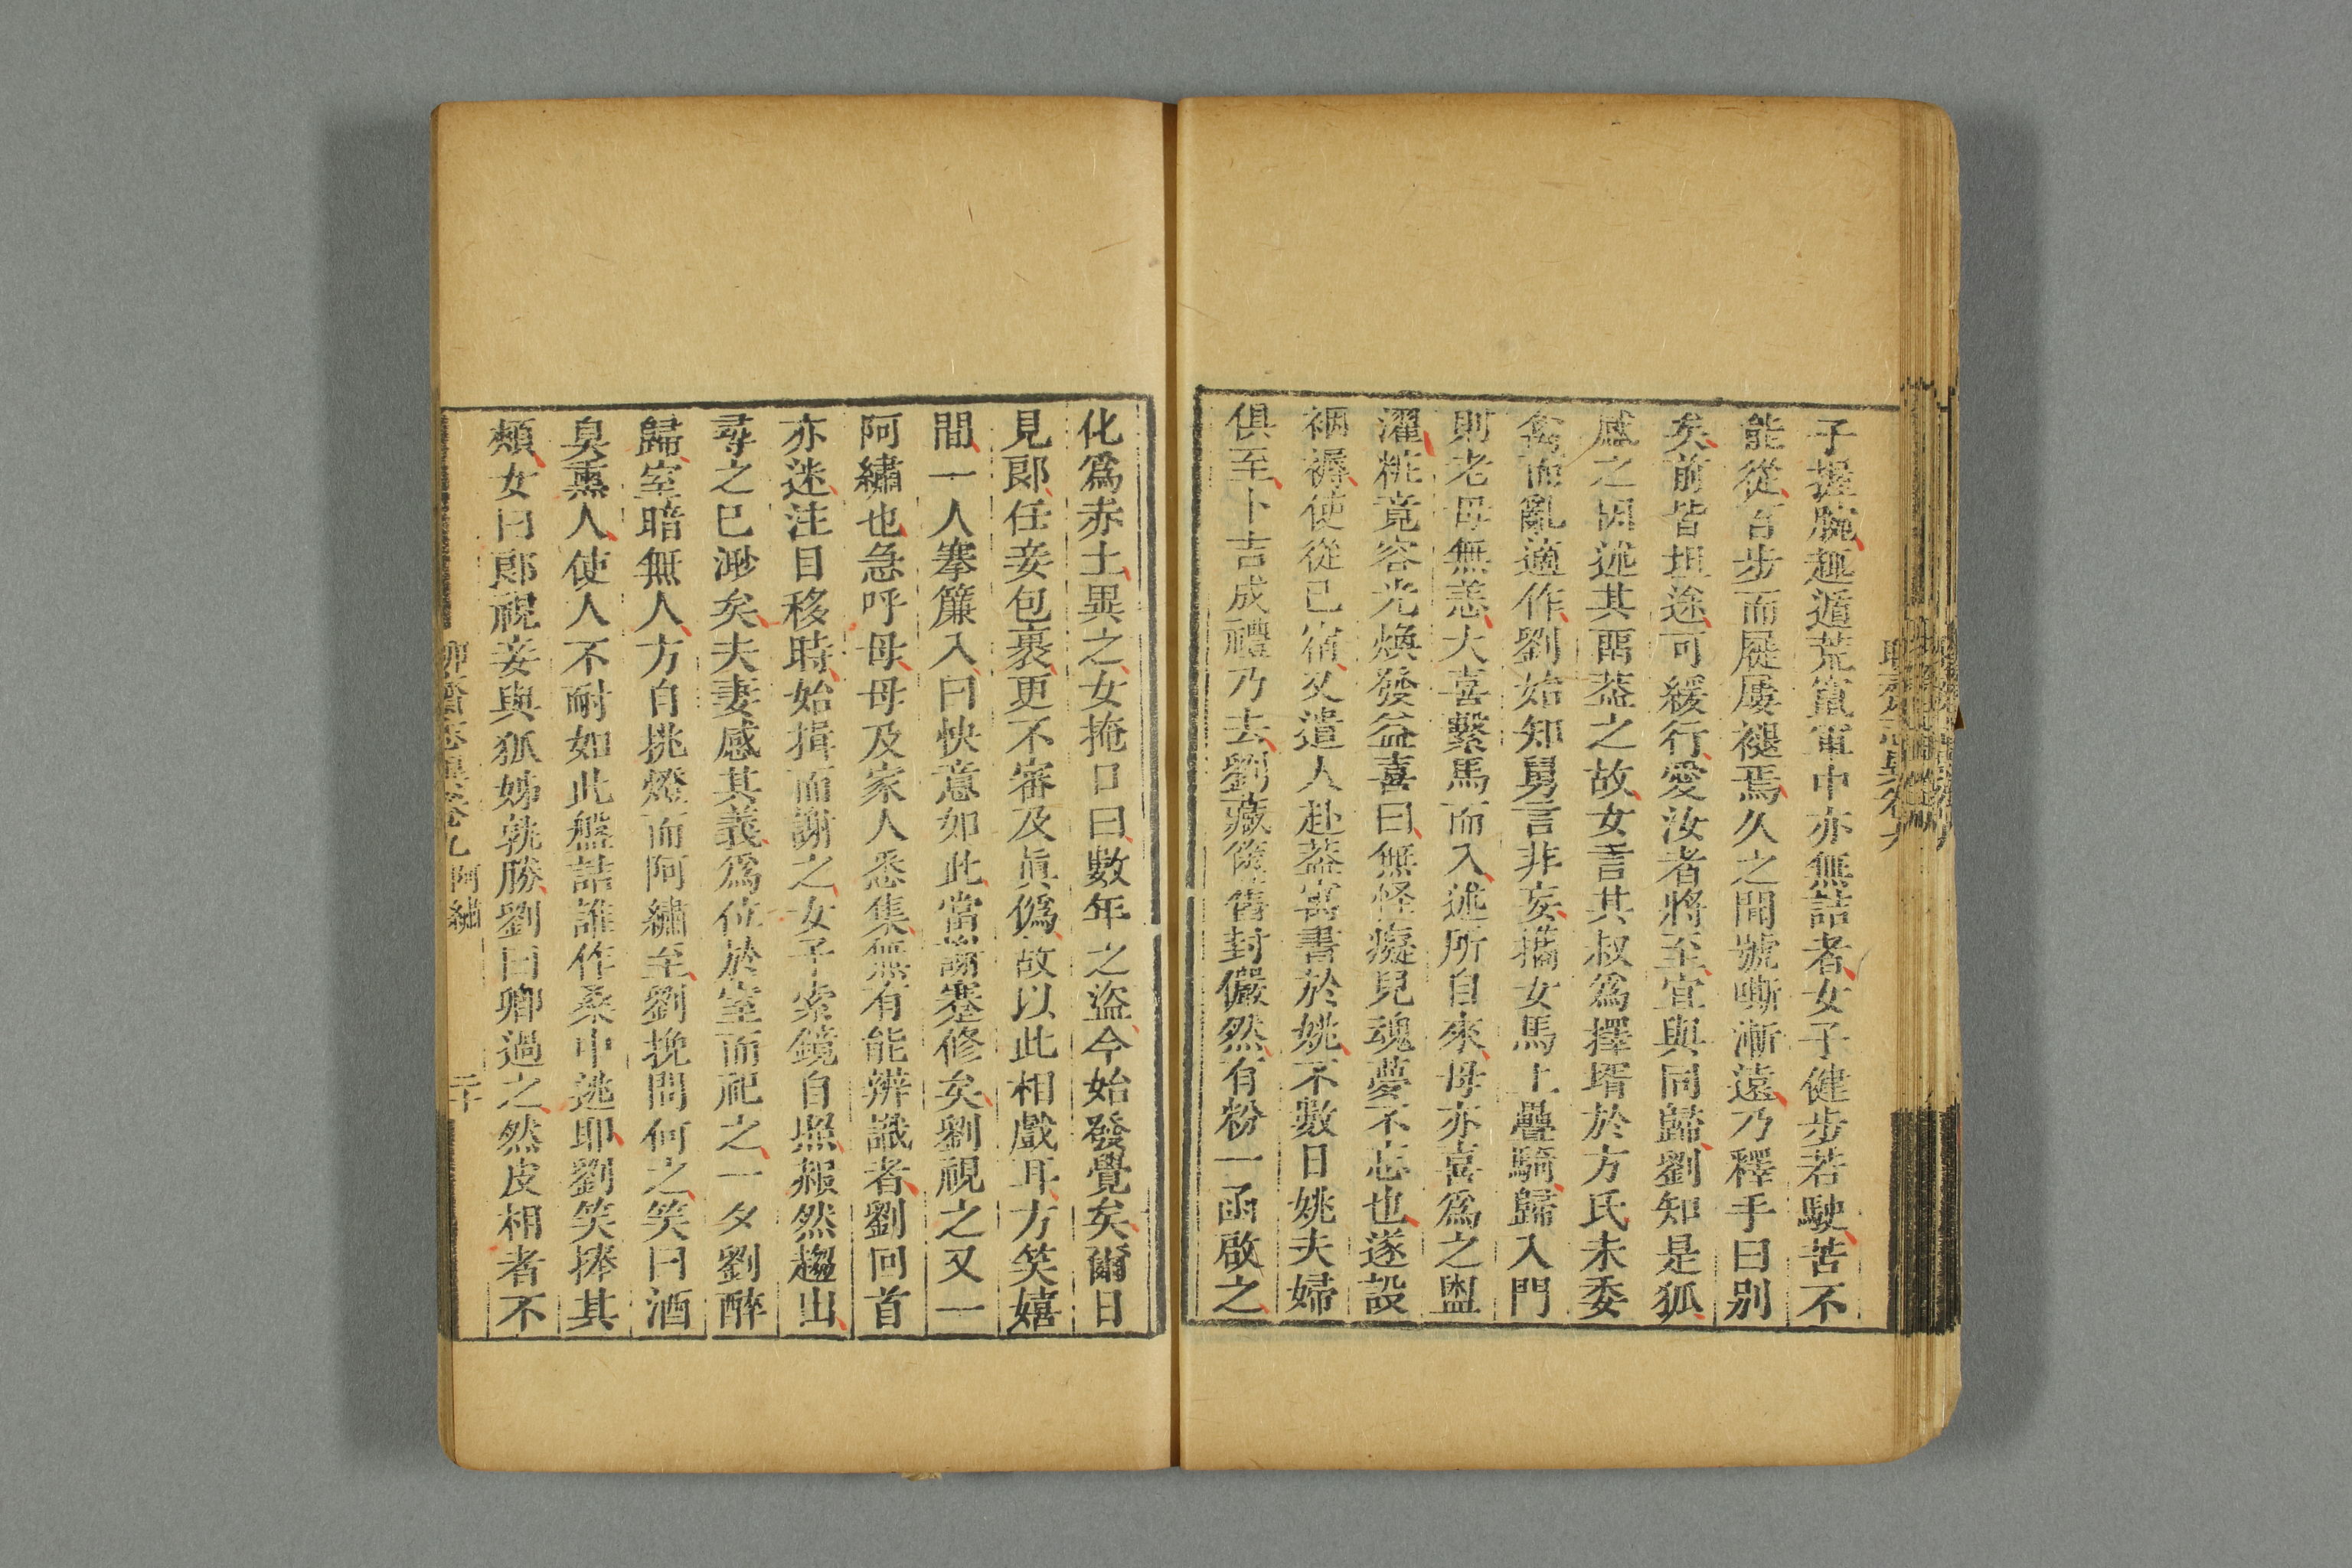 子握腕趣遁荒竄軍中亦無詰者女子健步若駛苦不
能從百步而屣屢褪焉久之聞號嘶漸遠乃釋手曰别
矣前皆坦途可緩行愛汝者將至宜與同歸劉知是狐
感之因述其畱葢之故女言其叔爲擇壻於方氏未委
禽而亂適作劉始知舅言非妄攜女馬上疊騎歸入門
則老母無恙大喜繫馬而入述所自來母亦喜爲之盥
濯粧竟容光煥發益喜曰無怪癡兒魂夢不忘也遂設
裀褥使從己宿又遣人赴葢寓書於姚不數日姚夫婦
俱至卜吉成禮乃去劉藏篋舊封儼然有粉一函啟之
化爲赤土異之女掩口曰數年之盜今始發覺矣爾日
見郎任妾包裹更不審及眞僞故以此相戲耳方笑嬉
間一人搴簾入曰快意如此當謝蹇修矣劉視之又一
阿繡也急呼母母及家人悉集無有能辨識者劉回首
亦迷注目移時始揖而謝之女子索鏡自照赧然趨出
尋之已渺矣夫妻感其義爲位於室而祀之一夕劉醉
歸室暗無人方自挑燈而阿繡至劉挽問何之笑曰酒
臭熏人使人不耐如此盤詰誰作桑中逃耶劉笑捧其
頰女曰郎視妾與狐姊孰勝劉曰卿過之然皮相者不
聊齋志異卷九 阿繡 二十